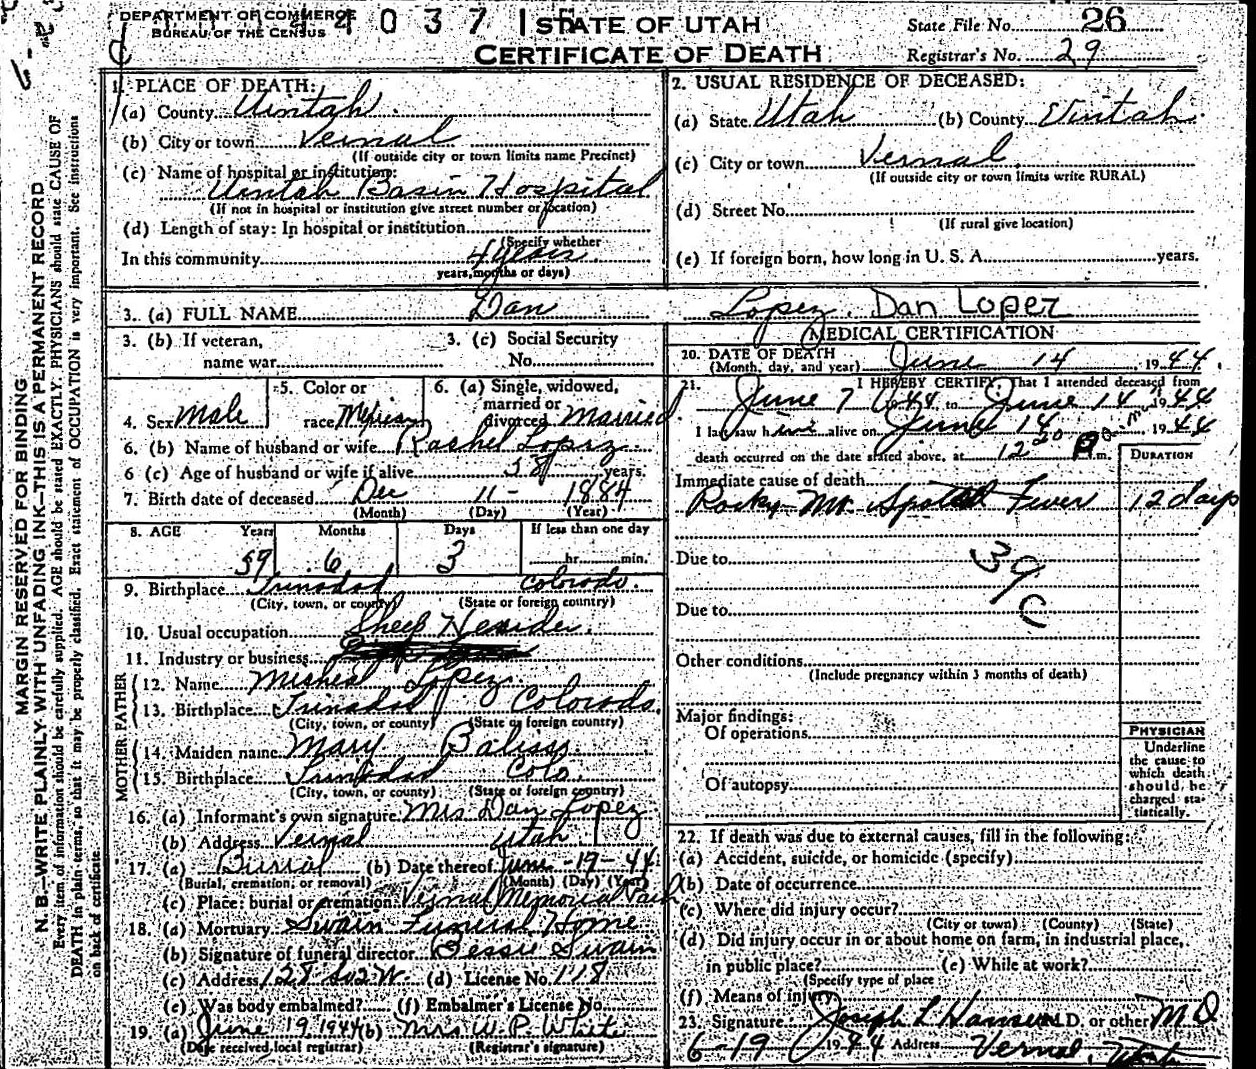 DEPARTMENT OF COMMERCE
BUREAU OF THE CENSUS
4 0 3 7 1 5
STATE OF UTAH
CERTIFICATE OF DEATH
State File No. 26
Registrar's No. 29
MARGIN RESERVED FOR BINDING
N. B.—WRITE PLAINLY WITH UNFADING INK—THIS IS A PERMANENT RECORD
Every item of information should be carefully supplied. AGE should be stated EXACTLY. PHYSICIANS should state CAUSE OF
DEATH in plain terms, so that it may be properly classified. Exact statement of OCCUPATION is very important. See instructions
on back of certificate.
1. PLACE OF DEATH:
(a) County Uintah
(b) City or town Vernal
(If outside city or town limits name Precinct)
(c) Name of hospital or institution:
Uintah Basin Hospital
(If not in hospital or institution give street number or location)
(d) Length of stay: In hospital or institution
(Specify whether
In this community 4 years
years, months or days)
2. USUAL RESIDENCE OF DECEASED:
(a) State Utah (b) County Uintah
(c) City or town Vernal
(If outside city or town limits write RURAL)
(d) Street No.
(If rural give location)
(e) If foreign born, how long in U. S. A. years.
3. (a) FULL NAME Dan Lopez Dan Lopez
3. (b) If veteran,
name war
3. (c) Social Security
No.
4. Sex Male
5. Color or
race Mexican
6. (a) Single, widowed,
married or
divorced Married
6. (b) Name of husband or wife Rachel Lopez
6 (c) Age of husband or wife if alive 38 years.
7. Birth date of deceased Dec 11 - 1884
(Month) (Day) (Year)
8. AGE Years Months Days If less than one day
59 6 3 hr. min.
9. Birthplace Trinadad Colorado.
(City, town, or county) (State or foreign country)
10. Usual occupation Sheep Herder.
11. Industry or business
FATHER
12. Name Lopez
13. Birthplace Trinadad Colorado.
(City, town, or county) (State or foreign country)
MOTHER
14. Maiden name Mary
15. Birthplace Trinadad Colo.
(City, town, or county) (State or foreign country)
16. (a) Informant's own signature Mrs Dan Lopez
(b) Address Vernal Utah
17. (a) Burial (b) Date thereof June - 19 - 44
(Burial, cremation, or removal) (Month) (Day) (Year)
(c) Place: burial or cremation Vernal Memorial Park
18. (a) Mortuary Swain Funeral Home
(b) Signature of funeral director Bessie Swain
(c) Address 128 So 2 W. (d) License No. 118
(e) Was body embalmed? (f) Embalmer's License No.
19. (a) June 19 1944 (b) Mrs W. P. White
(Date received local registrar) (Registrar's signature)
MEDICAL CERTIFICATION
20. DATE OF DEATH
(Month, day, and year) June 14, 1944
21. I HEREBY CERTIFY, That I attended deceased from
June 7 1944 to June 14, 1944
I last saw him alive on June 14 1944
death occurred on the date stated above, at 12 20 P. m.
DURATION
Immediate cause of death
Rocky Mt. Spotted Fever 12 days
Due to
39 c
Due to
Other conditions
(Include pregnancy within 3 months of death)
Major findings:
Of operations
Of autopsy
PHYSICIAN
Underline
the cause to
which death
should be
charged sta-
tistically.
22. If death was due to external causes, fill in the following:
(a) Accident, suicide, or homicide (specify)
(b) Date of occurrence
(c) Where did injury occur?
(City or town) (County) (State)
(d) Did injury occur in or about home on farm, in industrial place,
in public place? (e) While at work?
(Specify type of place
(f) Means of injury
23. Signature: Joseph L Hansen M.D. or other M D
6-19 1944 Address Vernal, Utah